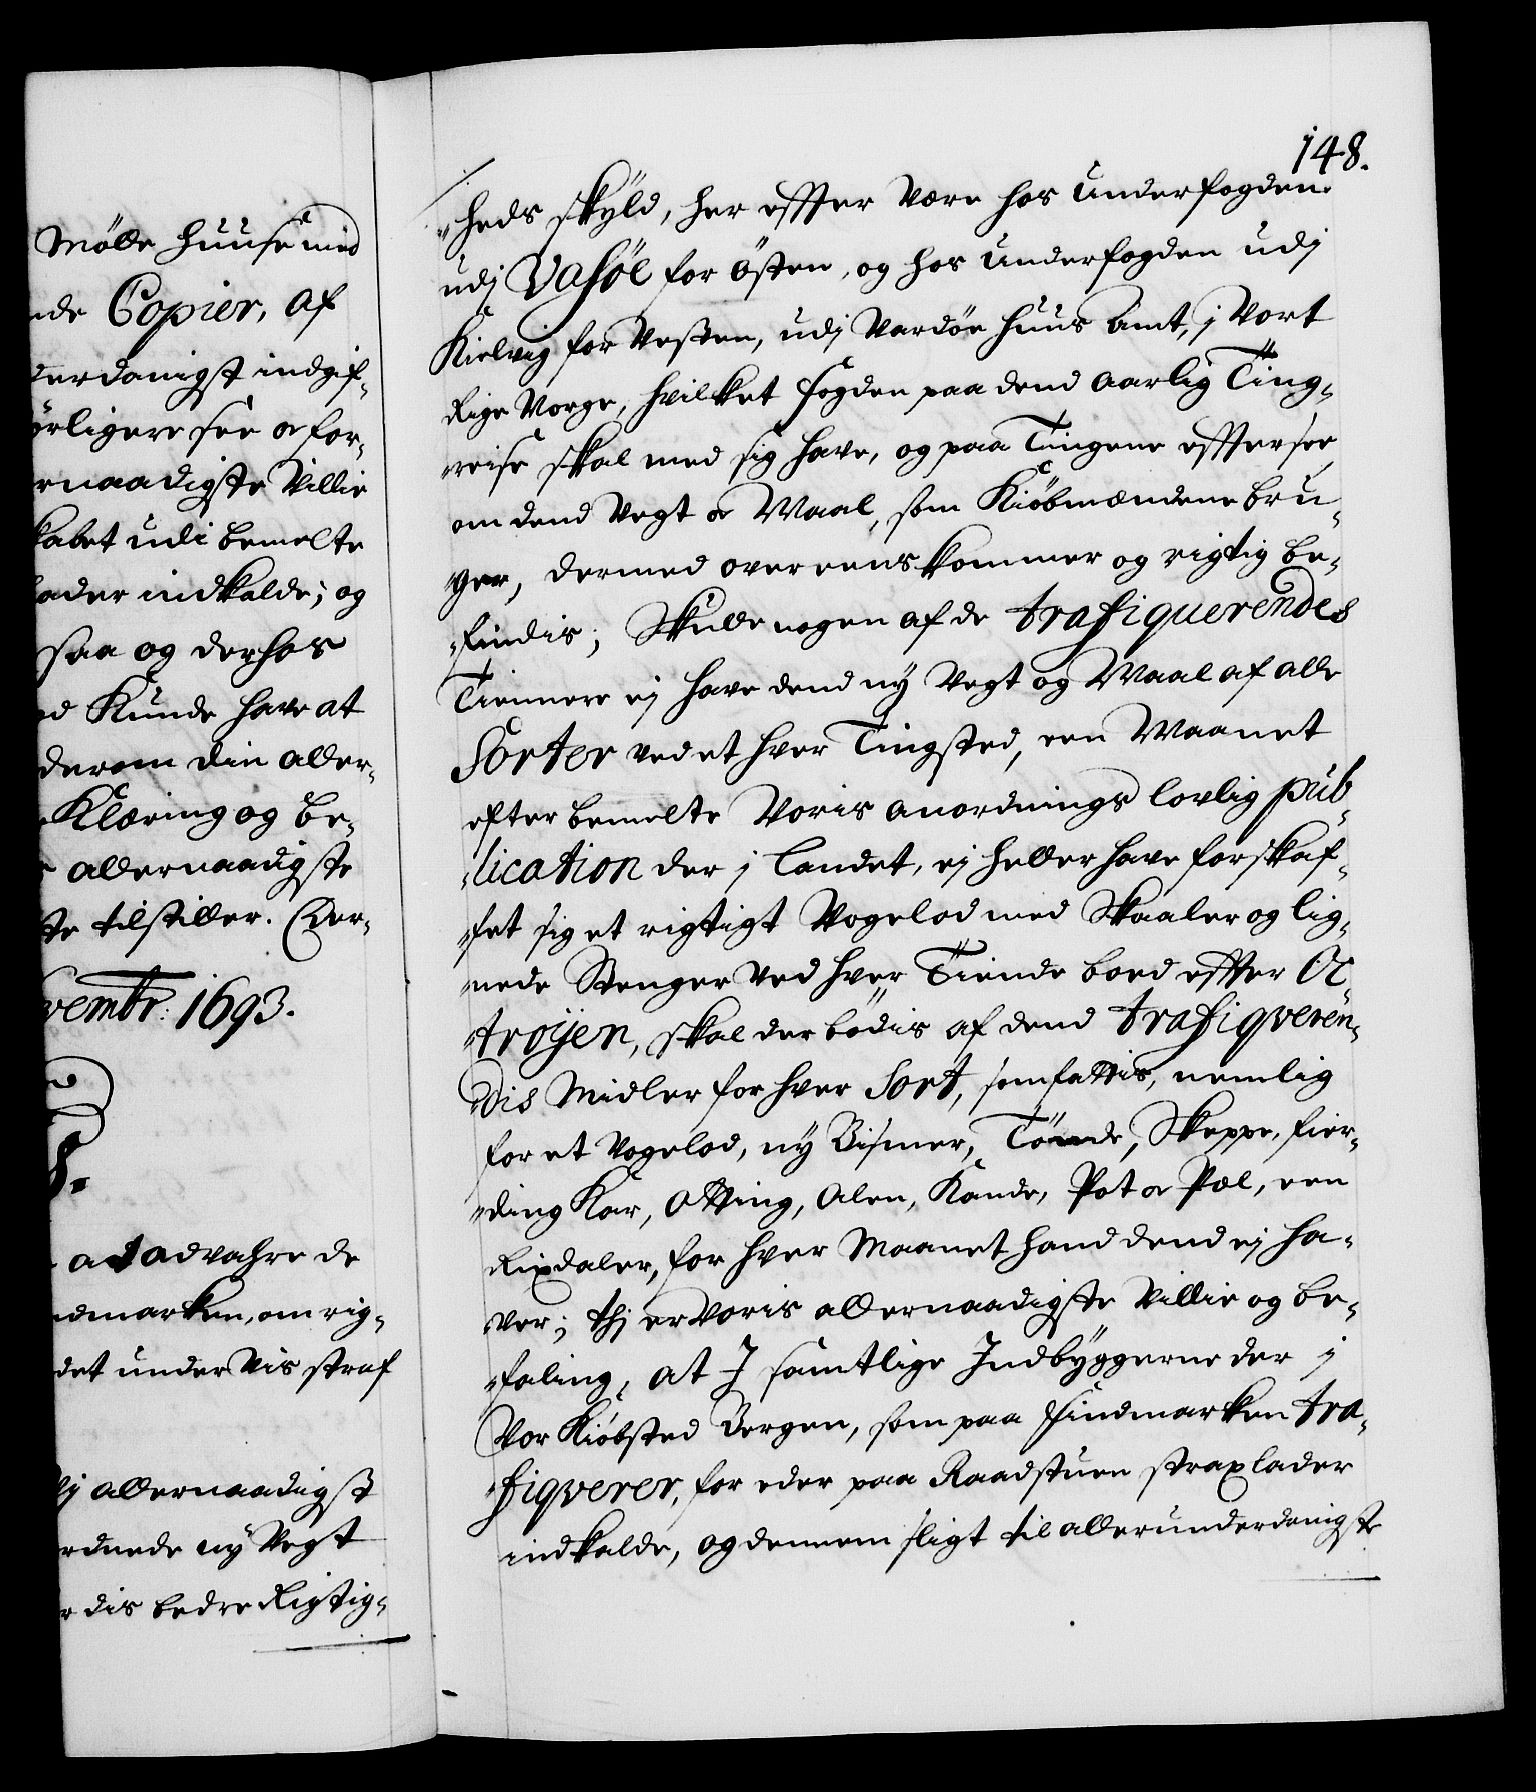 Mölle Huuse med
nde Copier, af
derdanigst indgif-
örligere see oc for-
ernaadigste Villie
kabet udi bemelte
lader indkalde; og
saa og derhos
nd Kunde have at
derom din aller-
Klæring og be-
allernaadigste
te tilstiller. Der-
vembr: 1693.
ad advahre de
ndmarken, om rig-
det under vis straf
j allernaadigst
ordnede ny Vegt
dis bedre Rigtig-
148.
"heds skyld, her effter være hos Underfogden
udj Vasöe for Östen, og hos Underfogden udj
Kielvig for Vesten, udj Vardöe huus Amt, j Vort
Rige Norge, hvilket Fogden paa dend aarlig Ting-
"reise skal med sig have, og paa Tingene efftersee,
om dend Vegt oc Maal, som Kiöbmændene bru-
"ger, dermed overeenskommer og rigtig be-
"findis; Skulle nogen af de trafiquerendes
Tiennere ej have dend ny Vegt og Maal af alle
Sorter ved et hver Tingsted, een Maanet
efter bemelte Voris anordnings lovlig pub-
"lication der j Landet, ej heller have forskaf-
"fet sig et rigtigt Vogelod med Skaaler og lig-
"nede Stenger ved hver Tiende boed effter Oc-
"troyen, skal der bödis af dend trafiqveren-
"dis Midler for hver Sort, som fattis, nemlig
for et Vogelod, ny Bismer, Tönde, Skeppe, Fier-
"ding Kar, Otting, Alen, Kande, Pot oc Pæl, een
Rixdaler, for hver Maanet hand dend ej ha-
"ver; thj er Voris allernaadigste Villie og be-
"faling, at I samtlige Indbyggerne der j
Vor Kiöbsted Bergen, som paa Findmarken tra-
"fiqverer, for eder paa Raadstuen strax lader
indkalde, og dennem sligt til allerunderdanigste